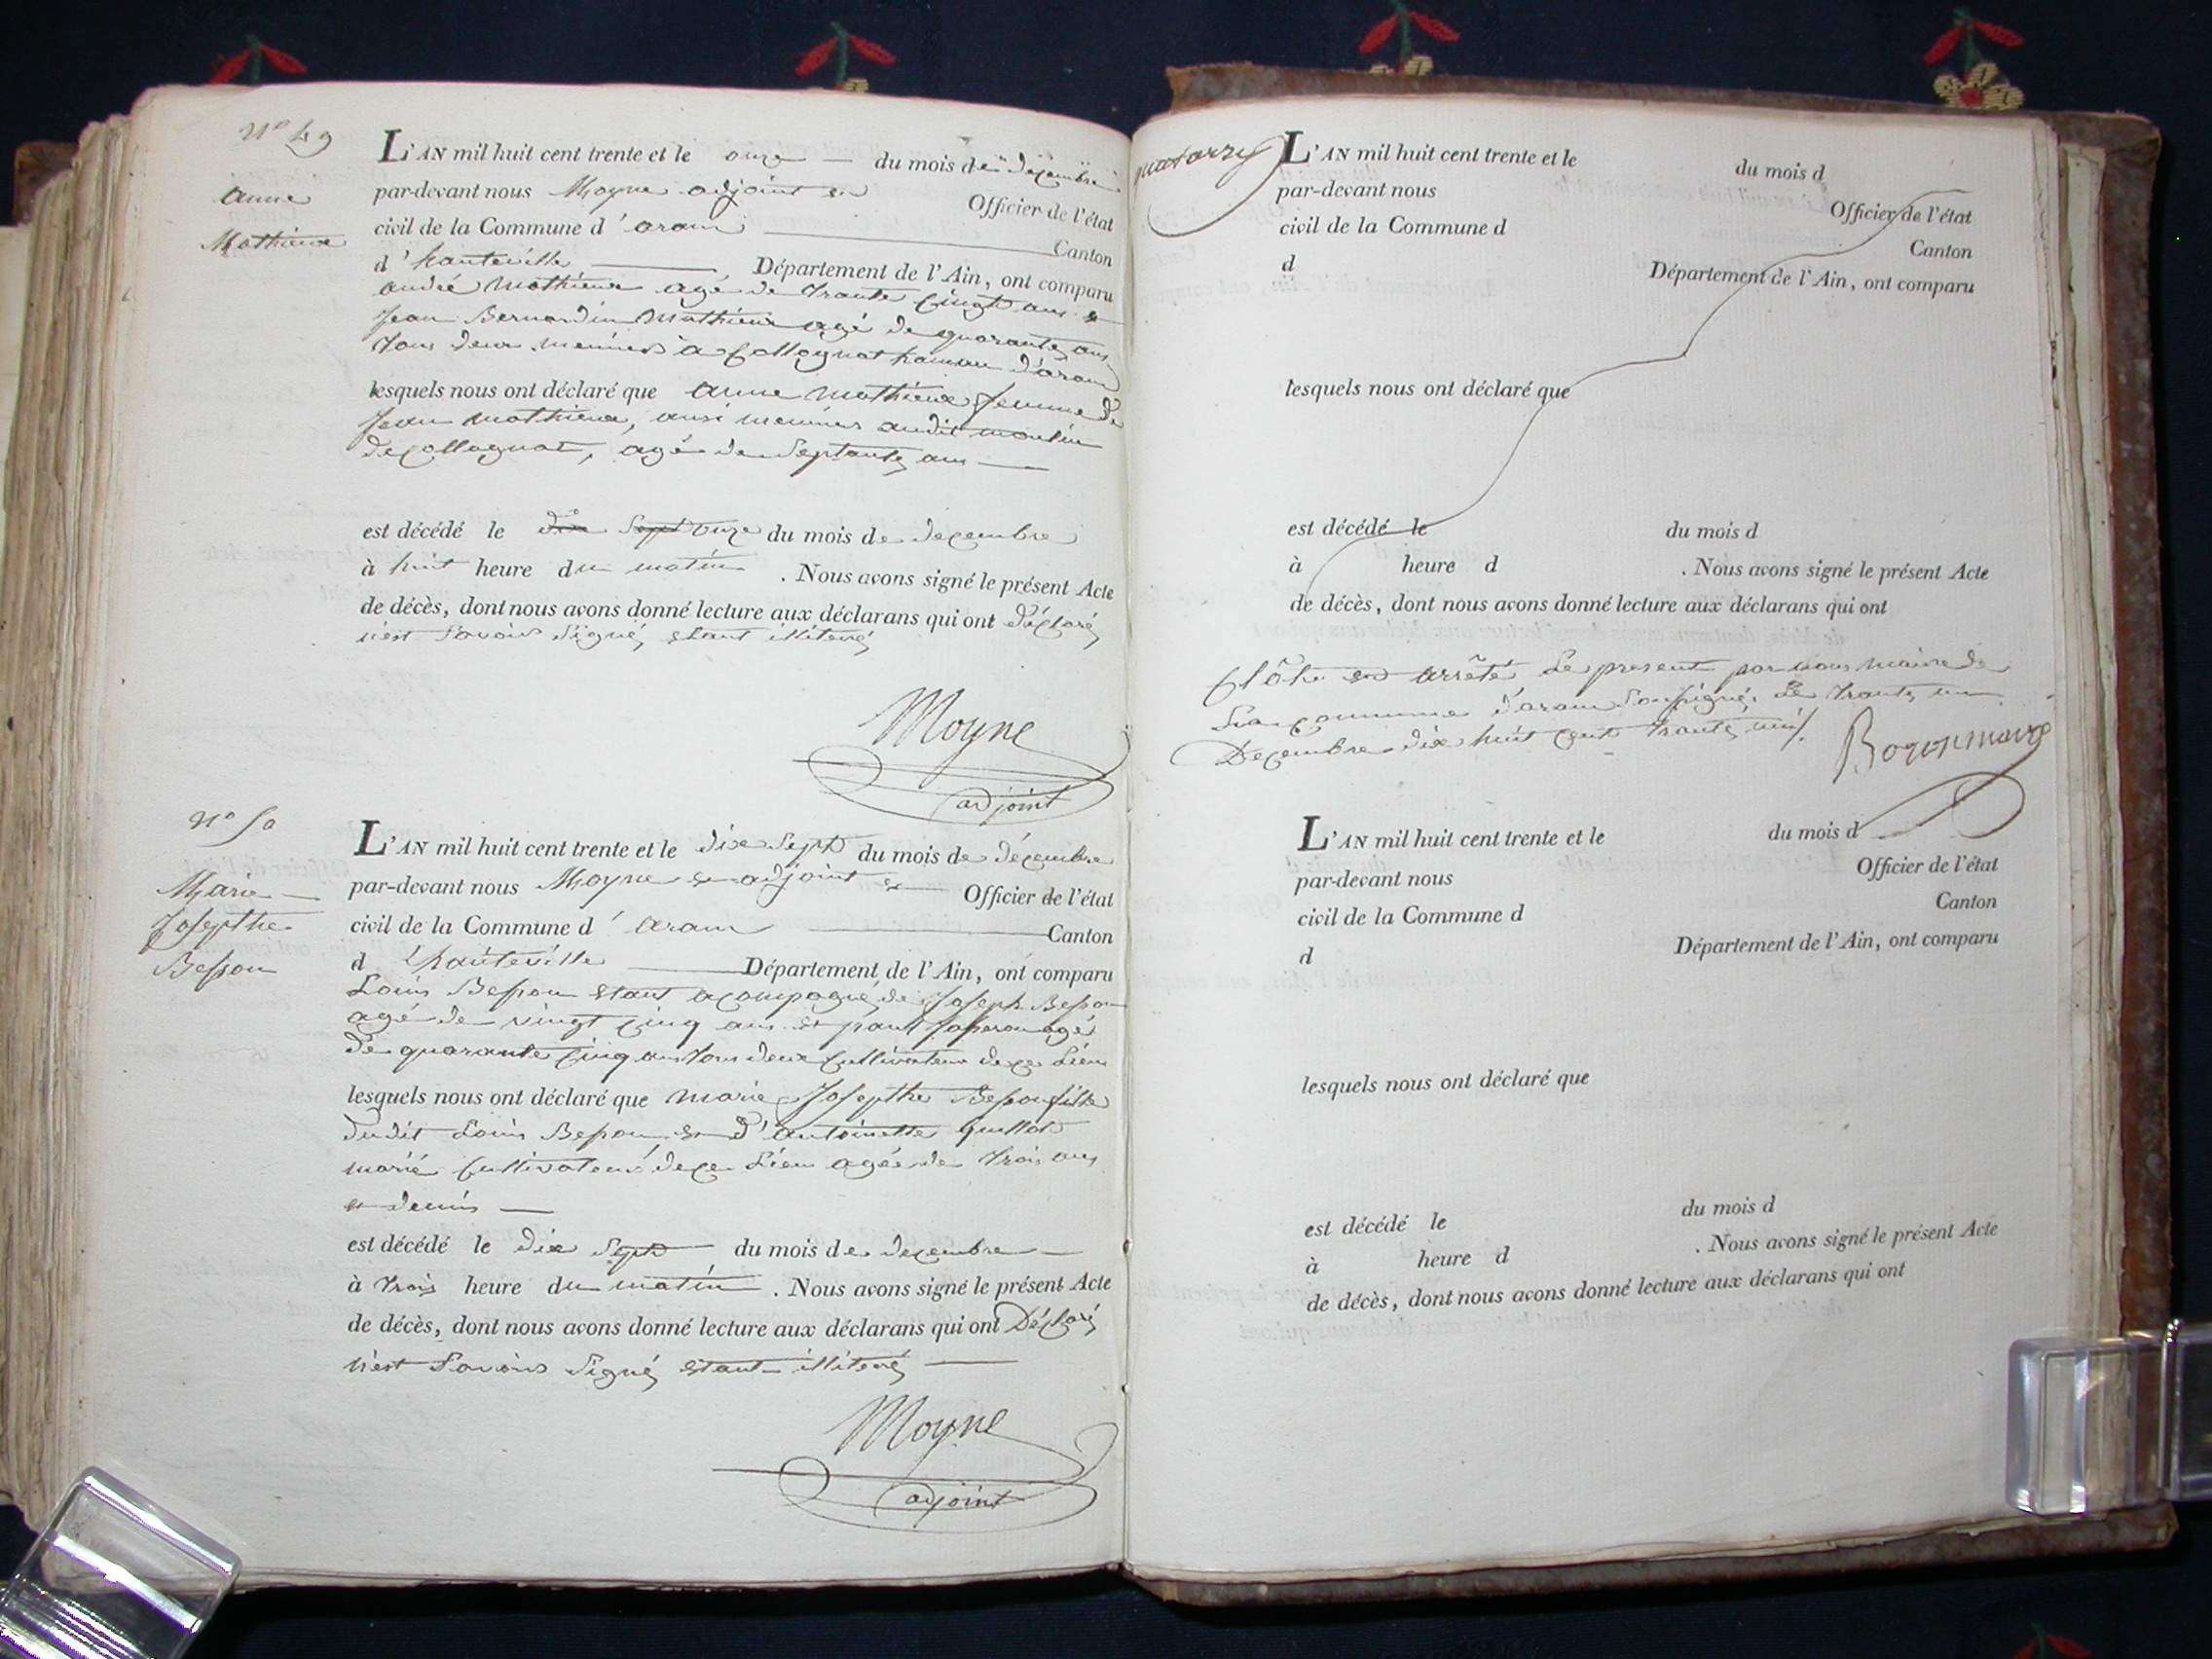 N° 49
L'AN mil huit cent trente et le onze du mois de décembre
par-devant nous Moyne adjoint Officier de l'état
anne
Mathieux
civil de la Commune d'aran Canton
d'hauteville Département de l'Ain, ont comparu
andré Mathieux agé de trante cinq ans
Jean Bernardin Mathieux agé de quarante ans
tous deux meuniers a Collognat hamau d'aran
lesquels nous ont déclaré que anne Mathieux femme de
Jean Mathieux, ausi meunier audit moulin
de Collognat, agé de septante ans
est décédé le dix sept onze du mois de decembre
à huit heure du matin . Nous avons signé le présent Acte
de décès, dont nous avons donné lecture aux déclarans qui ont déclaré
n'est savoir signé, etant illiteré
Moyne
adjoint
N° 50
L'AN mil huit cent trente et le dix sept du mois de décembre
par-devant nous Moyne adjoint Officier de l'état
Marie
Josepthe
Besson
civil de la Commune d'aran Canton
d'hauteville Département de l'Ain, ont comparu
Louis Besson etant acompagné de Joseph Besson
agé de vingt cinq ans et paul agé
de quarante cinq ans tous deux cultivateur de ce Lieu
lesquels nous ont déclaré que marie Josepthe Besson fille
dudit Louis Besson et d'antoinette guillot
marié cultivateur de ce Lieu agée de trois ans
et demis
est décédé le dix sept du mois de decembre
à trois heure du matin . Nous avons signé le présent Acte
de décès, dont nous avons donné lecture aux déclarans qui ont Déclaré
n'est savoir signé etant illiteré
Moyne
adjoint
quatorze
L'AN mil huit cent trente et le du mois d
par-devant nous Officier de l'état
civil de la Commune d Canton
d Département de l'Ain, ont comparu
lesquels nous ont déclaré que
est décédé le du mois d
à heure d . Nous avons signé le présent Acte
de décès, dont nous avons donné lecture aux déclarans qui ont
Clôt et arrêté Le present par nous maire de
La commune d'aran soussigné. Le trante un
Decembre dix huit cent trante
L'AN mil huit cent trente et le du mois d
par-devant nous Officier de l'état
civil de la Commune d Canton
d Département de l'Ain, ont comparu
lesquels nous ont déclaré que
est décédé le du mois d
à heure d . Nous avons signé le présent Acte
de décès, dont nous avons donné lecture aux déclarans qui ont